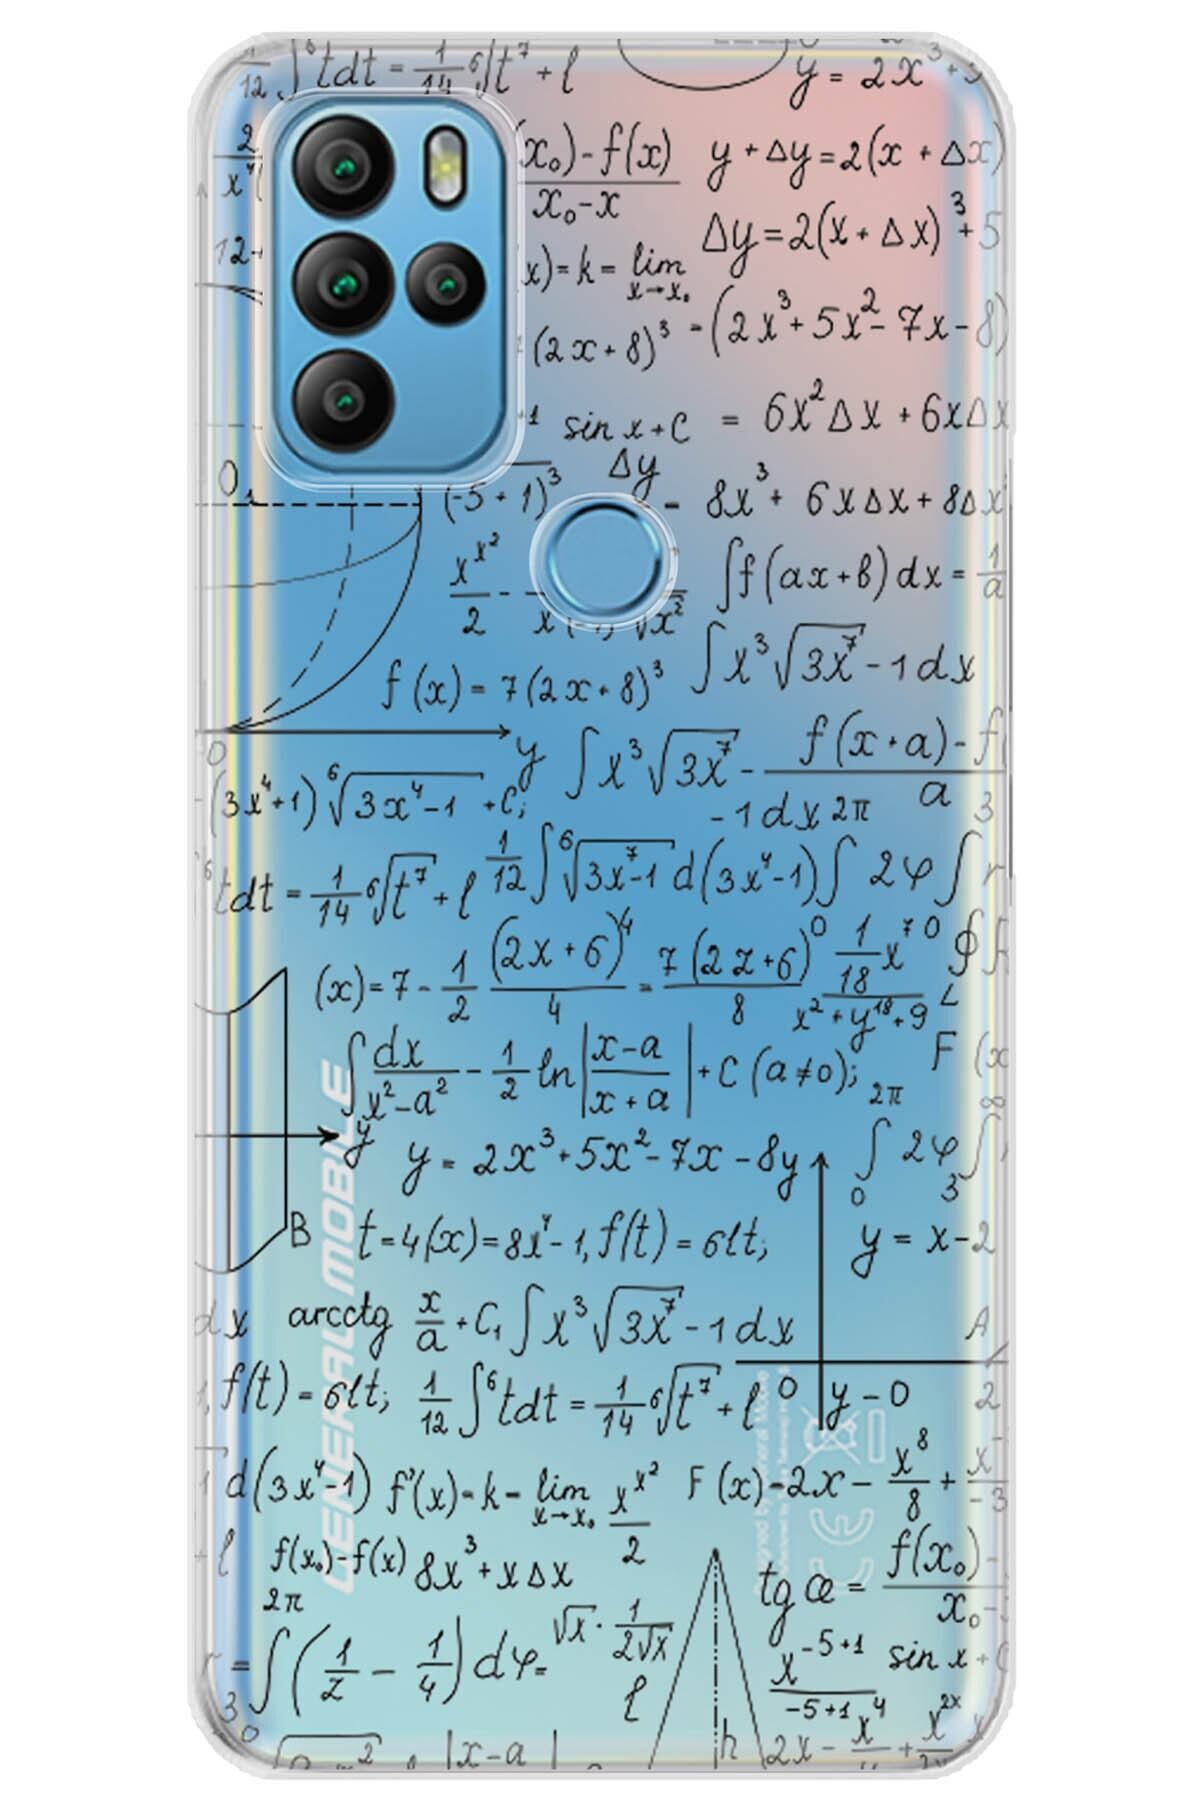 12 ∫⁶tdt = 1/14 ⁶√t⁷ + l
y = 2x³+5
2
x⁴(
x₀)-f(x)
x₀-x
y + Δy = 2(x + Δx)
12-
Δy = 2(x + Δx)³ + 5
x) = k = lim
x→x₀
(2x + 8)³
-(2x³ + 5x² - 7x - 8)
+1 sin x + C
= 6x²Δx + 6xΔx
Δy
(-5 + 1)³
- 8x³ + 6xΔx + 8Δx
x^x²
2
∫f(ax+b)dx = 1/a
√x²
f(x) = 7(2x + 8)³
∫x³√3x⁷ - 1dx
0
y
∫x³√3x⁷ -
f(x+a)-f(
a
-(3x⁴+1) ⁶√3x⁴-1 + C;
- 1dx 2π
3
⁶tdt = 1/14 ⁶√t⁷ + l
1/12 ∫⁶√3x⁷-1 d(3x⁴-1)∫ 2φ ∫r
(x) = 7 - 1/2 (2x+6)⁴/4 = 7(2z+6)⁰/8
1/18 x⁷⁰
x²+y¹⁸+9
∮F
L
∫dx/x²-a² - 1/2 ln|x-a/x+a| + C (a≠0);
F (x
2π
∞
y
y = 2x³+5x²-7x-8y
∫ 2φ ∫
0
3
B
t=4(x)=8x⁴-1, f(t)=6lt;
y = x-2
GENERAL MOBILE
dx
arcctg x/a + C₁ ∫x³√3x⁷ - 1dx
A
f(t) = 6lt; 1/12 ∫⁶tdt = 1/14 ⁶√t⁷ + l
0
y-0
2
d(3x⁴-1) f'(x)=k= lim x^x²
x→x₀
2
F(x)=2x - x⁸/8 + x
-3
l
f(x₀)-f(x) 8x³+xΔx
2π
tg æ = f(x₀)-
x₀-
= ∫(1/z - 1/4)dφ=
√x · 1/2√x
3
0
l
x^-5+1
-5+1
sin x + C
h
2x - x⁴ + x^2x
x²
|x-a